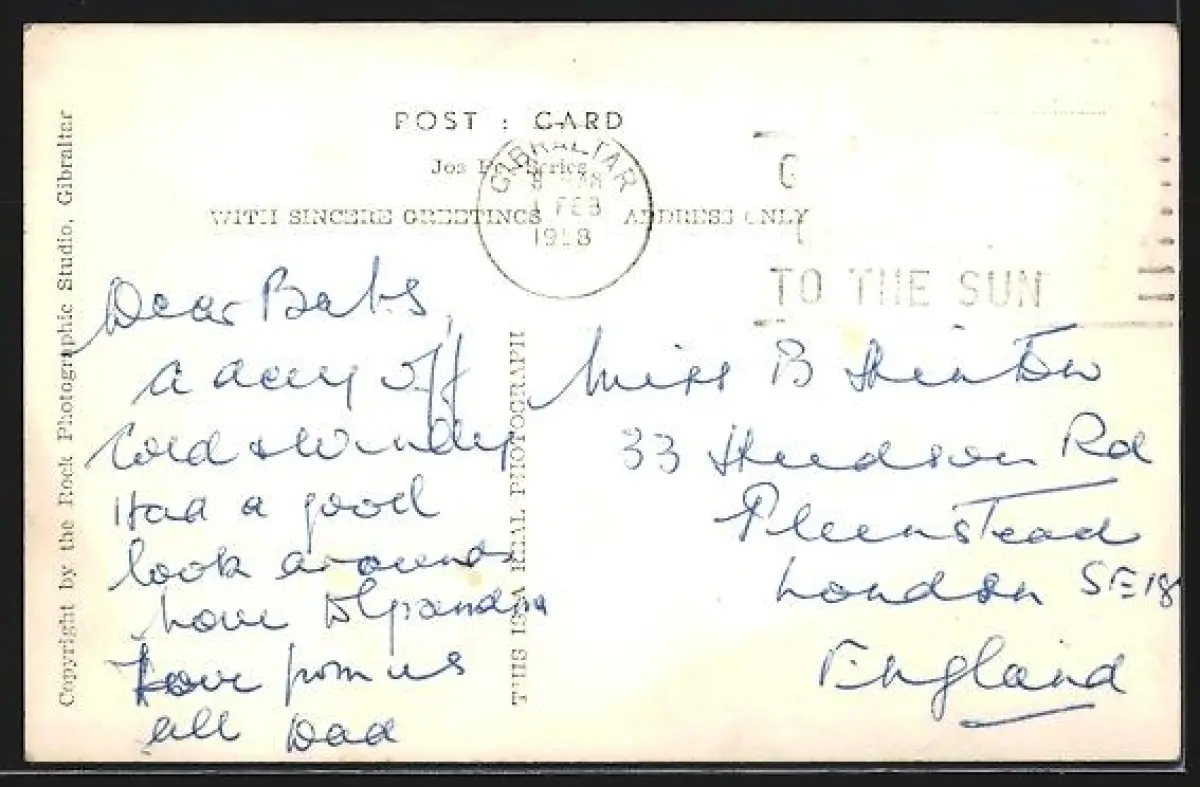 POST : CARD
Series
WITH SINCERE GREETINGS ADDRESS ONLY
GIBRALTAR
1 FEB
1958
TO THE SUN
Copyright by the Rock Photographic Studio, Gibraltar
THIS IS A REAL PHOTOGRAPH
Dear Babs
a day off
Cold & Windy
Had a good
look around
Love to Grandma
Love from us
all Dad
Miss B
33 Hudson Rd
Plumstead
London SE 18
England